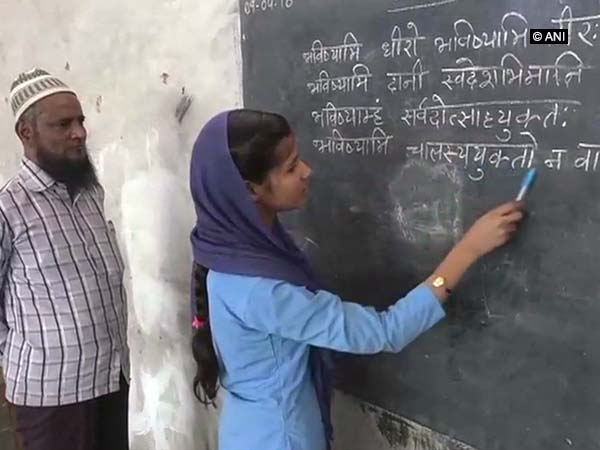 © ANI
भविष्यामि धीरो भविष्यामि
भविष्यामि दानी स्वदेशभिमानि
भविष्याम्हं सर्वदोत्साहयुक्तः
भविष्यामि चालस्ययुक्तो न वा